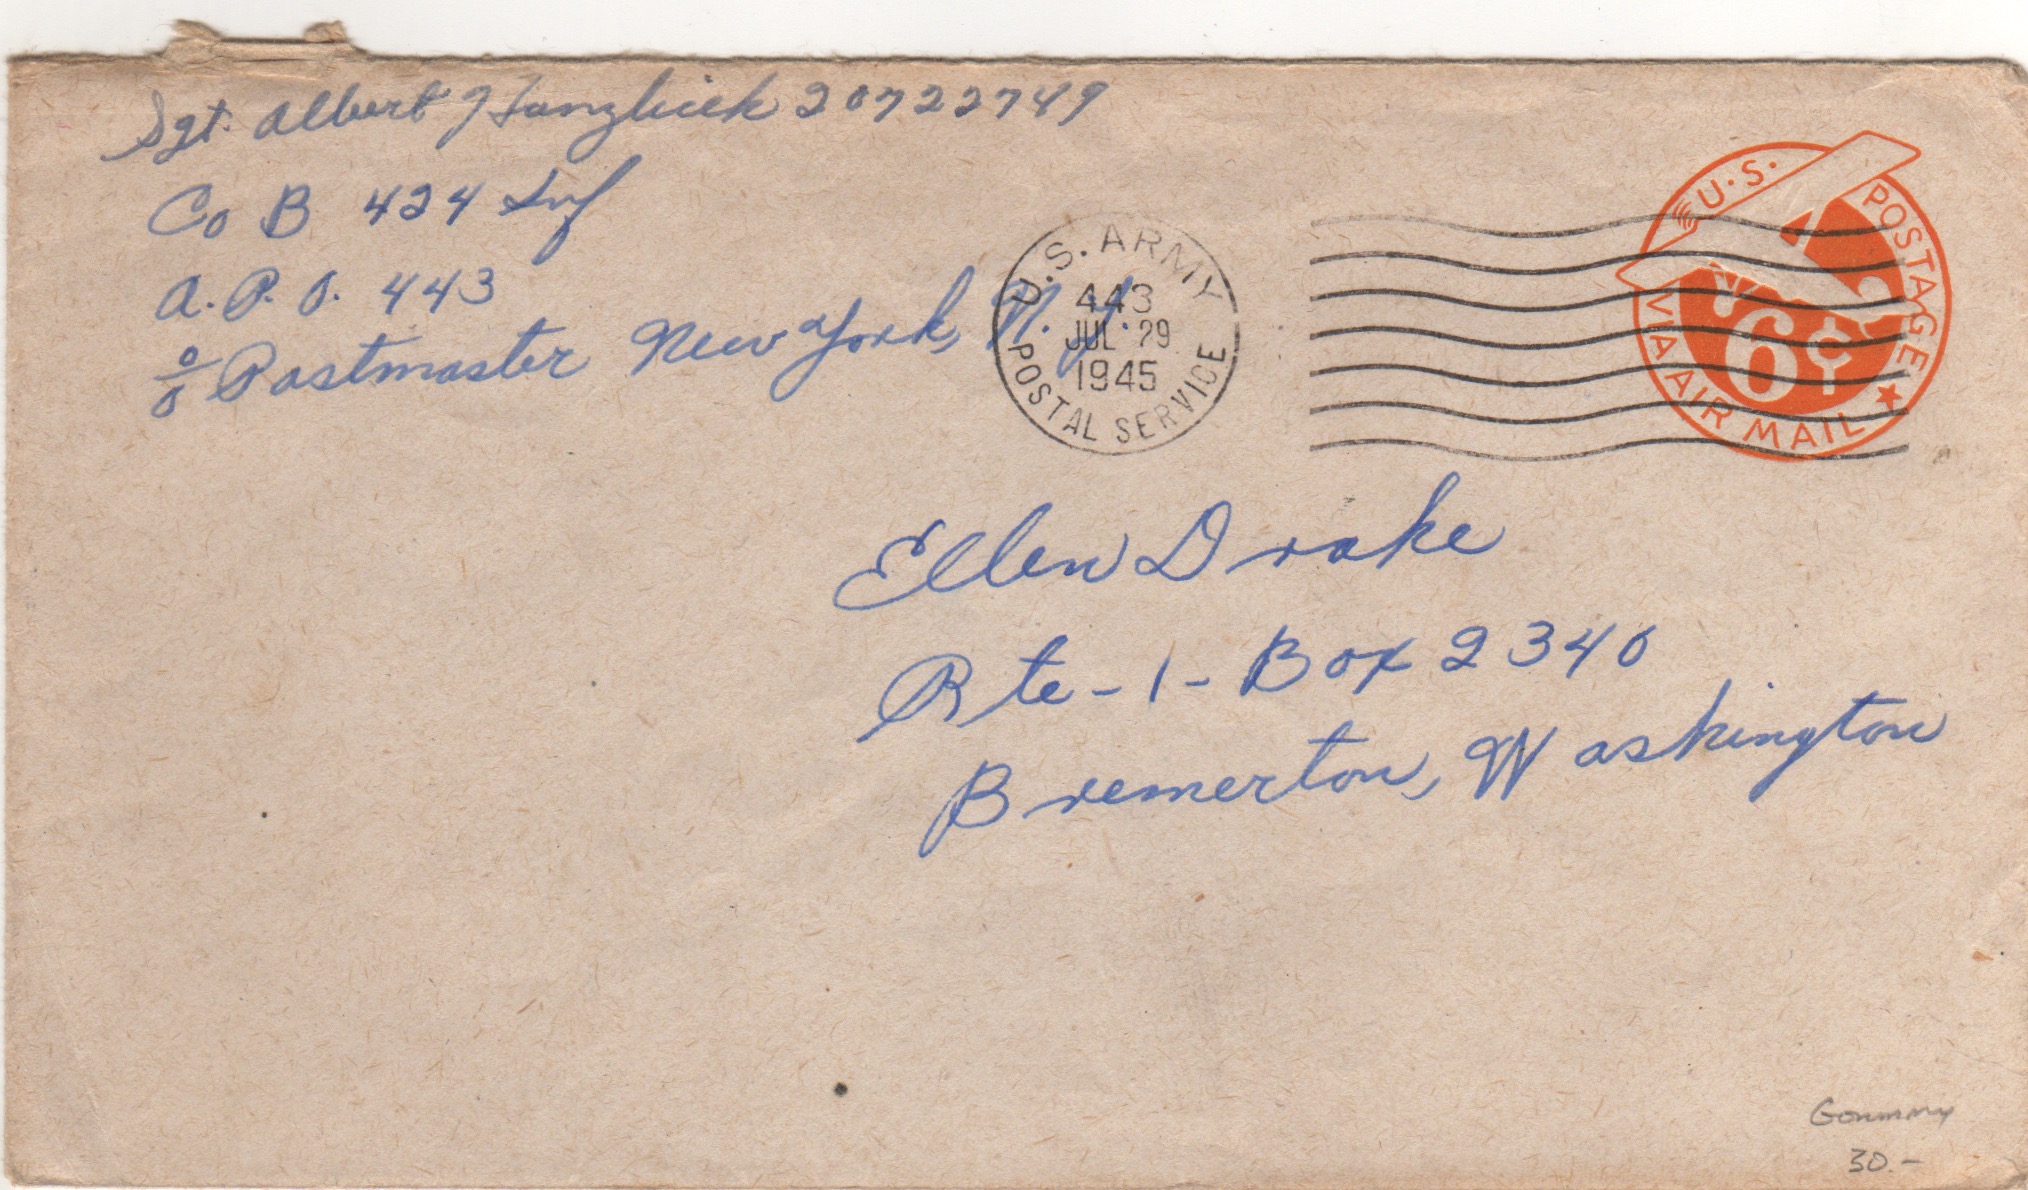 Sgt. Albert J Hanzlicek 20722749
Co B 424 Inf
A.P.O. 443
c/o Postmaster New York, N.Y.
U.S. ARMY
443
JUL 29
1945
POSTAL SERVICE
U.S. POSTAGE
6¢
VIA AIR MAIL
Ellen Drake
Rte-1-Box 2340
Bremerton, Washington
Germany
30.-